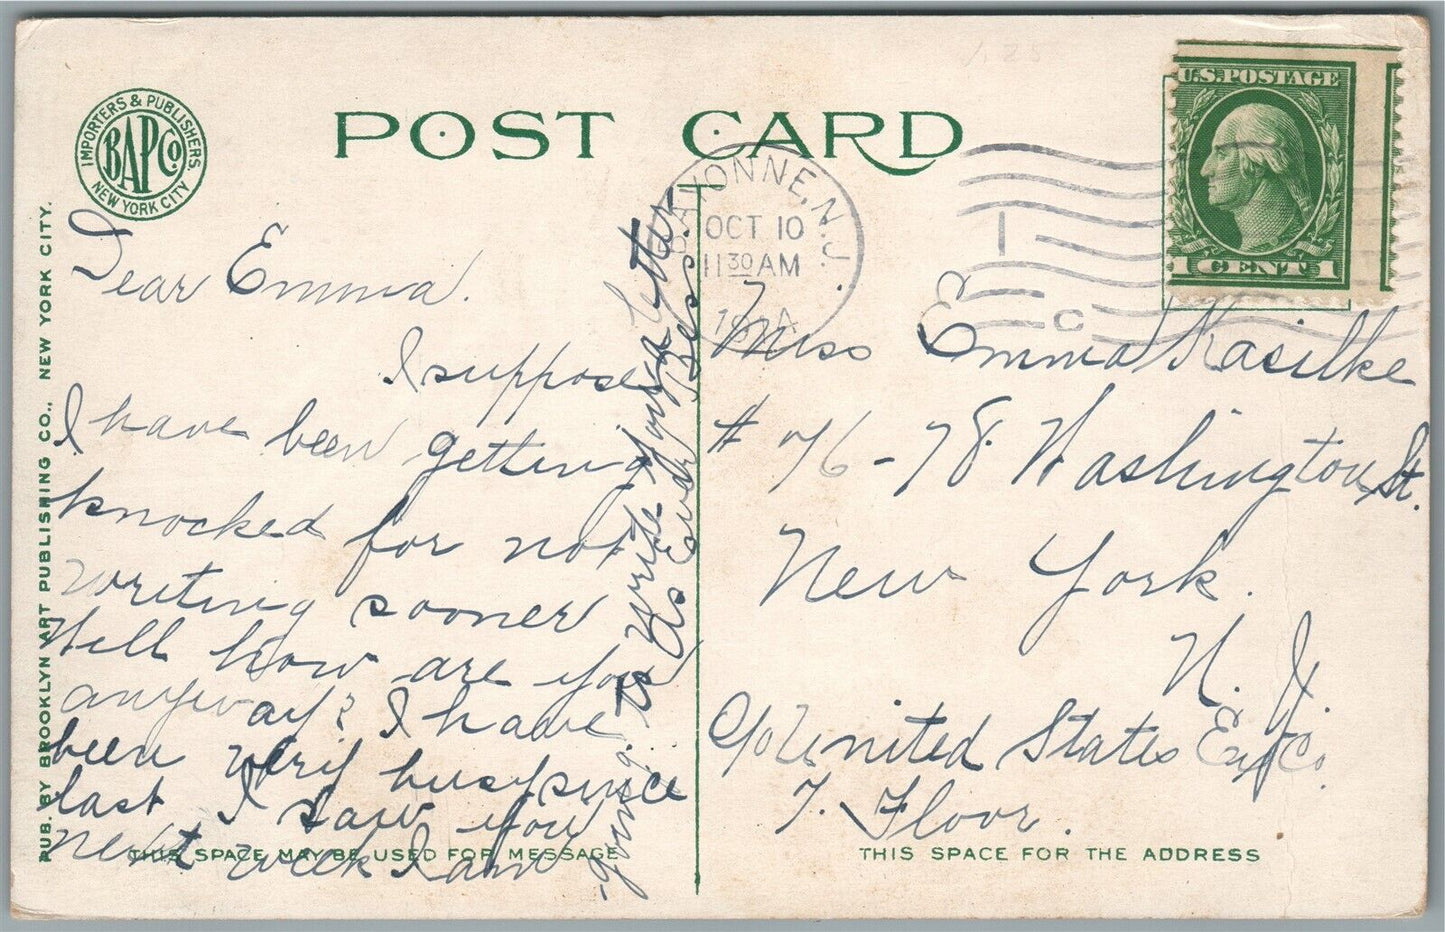 POST CARD
IMPORTERS & PUBLISHERS.
BAPCo
NEW YORK CITY
PUB. BY BROOKLYN ART PUBLISHING CO., NEW YORK CITY.
U.S. POSTAGE
1 CENT 1
BAYONNE, N.J.
OCT 10
11 30 AM
191
C
Dear Emma.
I suppose
I have been getting
knocked for not
writing sooner
Well how are you
anyway? I have
been very busy since
last I saw you
next week I am
going to write you a letter
As Ever Bess
Miss Emma Kasilke
# 76-78 Washington St.
New York.
N. Y.
c/o United States Ex Co.
7. Floor.
THIS SPACE MAY BE USED FOR MESSAGE
THIS SPACE FOR THE ADDRESS